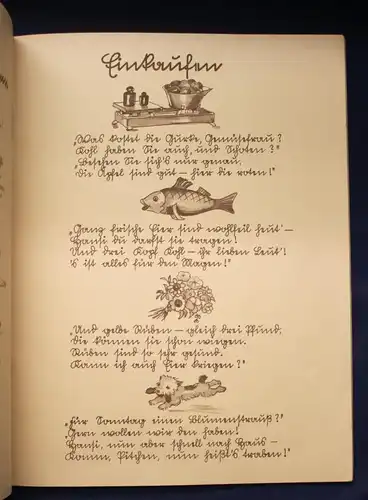 Einkaufen
„Was kostet die Gurke, Gemüsefrau?
Kohl haben Sie auch, und Schoten?"
„Besehen Sie sich's nur genau,
Die Äpfel sind gut – hier die roten!"
„Ganz frische Eier sind wohlfeil heut' –
Hansi du darfst sie tragen!
Und drei Kopf Kohl – ihr lieben Leut'!
's ist alles für den Magen!"
„Und gelbe Rüben – gleich drei Pfund,
Die können sie schon wiegen.
Rüben sind so sehr gesund.
Kann ich auch Eier kriegen?"
„Für Sonntag einen Blumenstrauß?"
„Gern wollen wir den haben!
Hansi, nun aber schnell nach Haus –
Komm, Pitchen, nun heißt's traben!"